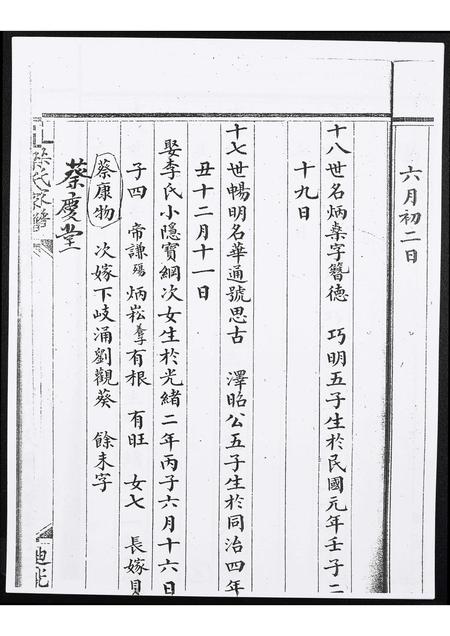 六月初二日
十八世名炳燊字簪德　巧明五子生於民國元年壬子二
十九日
十七世暢明名華通號思古　澤昭公五子生於同治四年
丑十二月十一日
娶李氏小隱寶綱次女生於光緒二年丙子六月十六日
子四　帝謙殤　炳崧養子　有根　有旺　女七　長嫁貝
蔡康物　次嫁下岐涌劉觀葵　餘未字
蔡慶堂
氏家譜